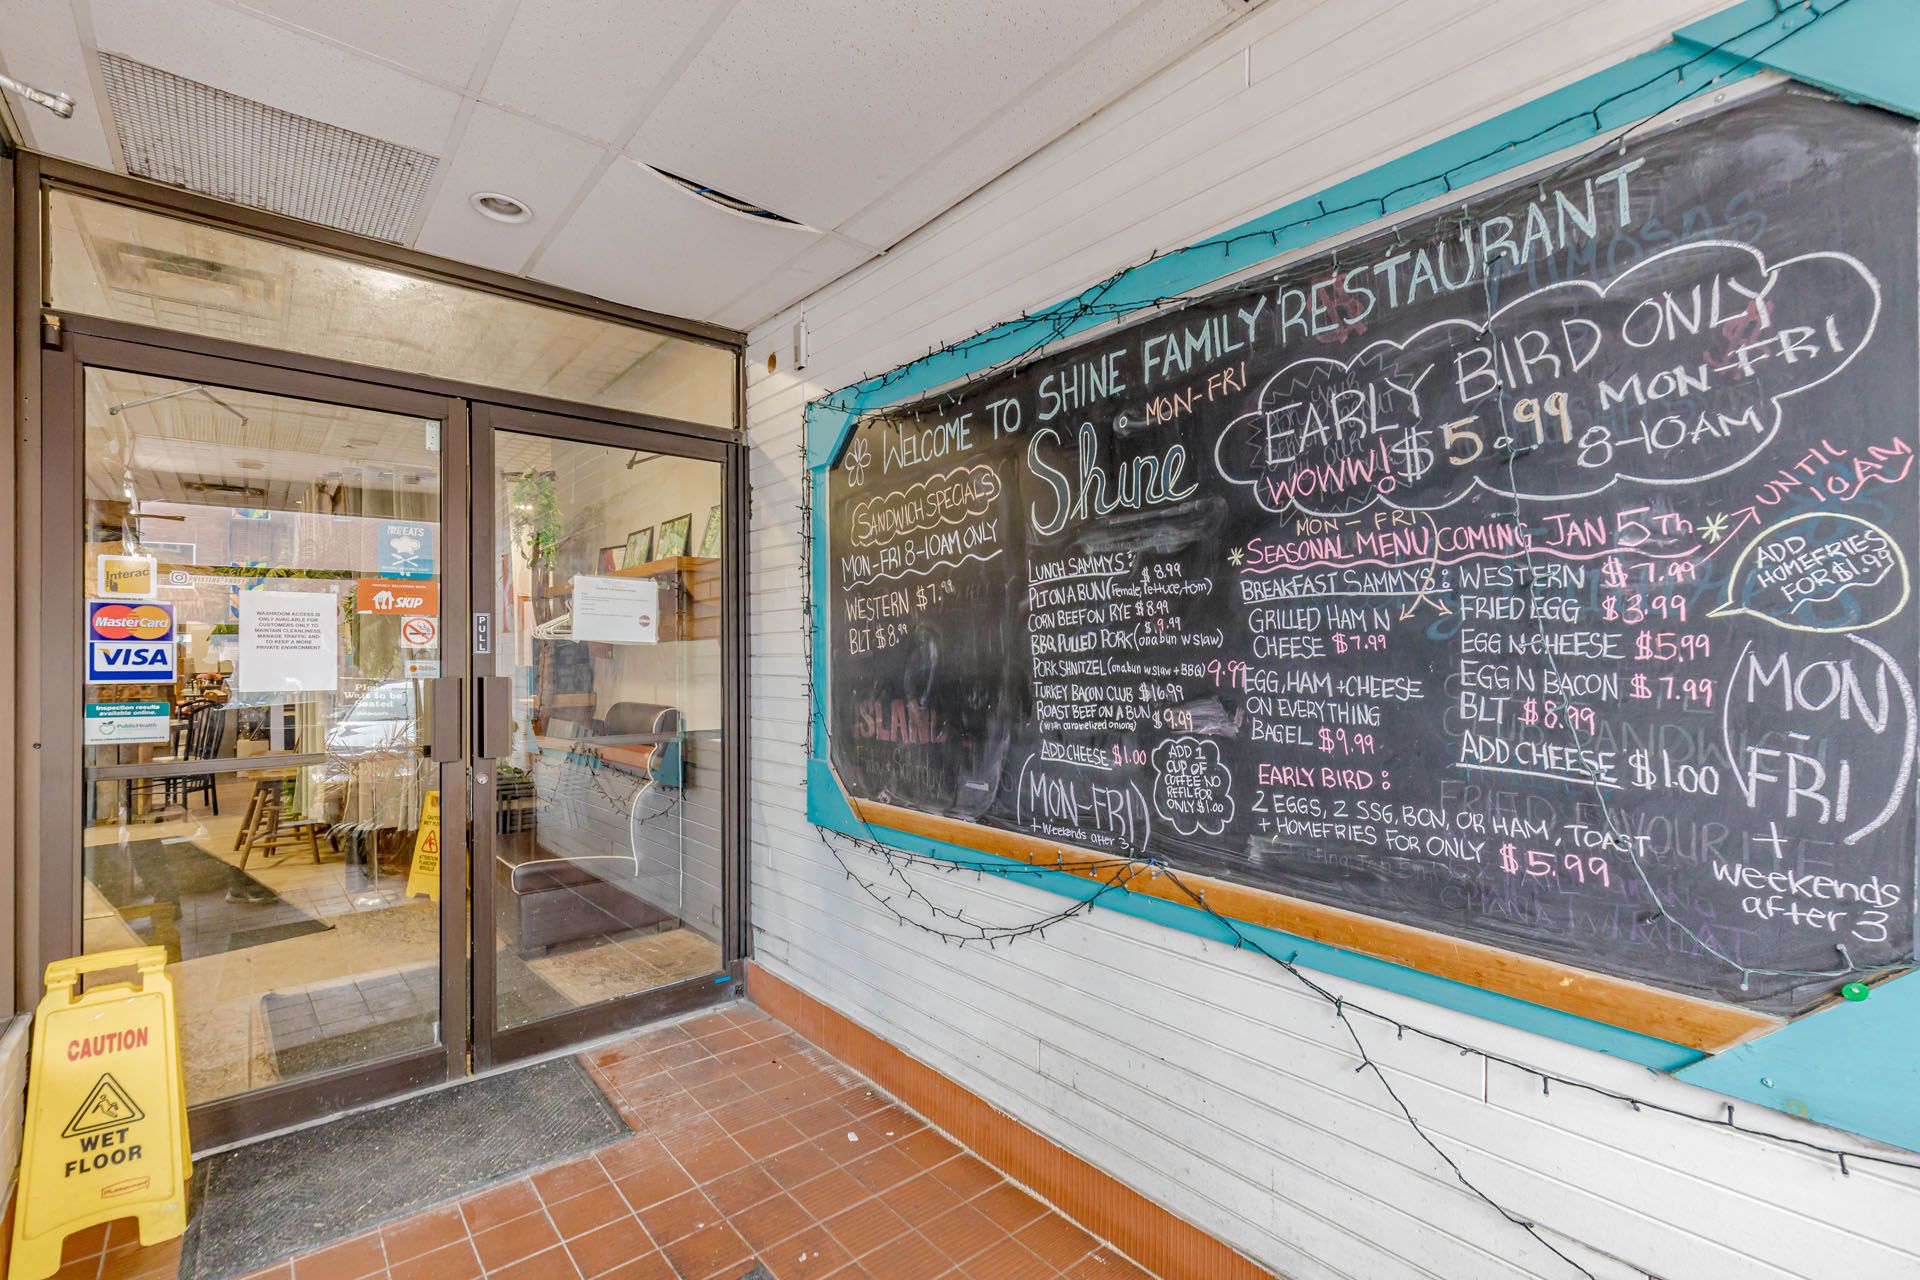 Interac
MasterCard
VISA
Inspection results
available online.
PublicHealth
WASHROOM ACCESS IS
ONLY AVAILABLE FOR
CUSTOMERS ONLY TO
MAINTAIN CLEANLINESS,
MANAGE TRAFFIC AND
TO KEEP A MORE
PRIVATE ENVIRONMENT
EATS
PROUDLY DELIVERING WITH
SKIP
Please
Wait to be
Seated
PULL
CAUTION
WET FLOOR
ATTENTION
CAUTION
WET
FLOOR
Rubbermaid
WELCOME TO SHINE FAMILY RESTAURANT
SANDWICH SPECIALS
MON-FRI 8-10AM ONLY
WESTERN $7.99
BLT $8.99
ISLAND
Friday + Saturday
MON-FRI
Shine
LUNCH SAMMYS:
PLT ON A BUN (Pemale, lettuce, tom) $8.99
CORN BEEF ON RYE $8.99
BBQ PULLED PORK (on a bun w slaw) $9.99
PORK SHNITZEL (on a bun w slaw + BBQ) 9.99
TURKEY BACON CLUB $16.99
ROAST BEEF ON A BUN $9.99
(with caramelized onions)
ADD CHEESE $1.00
(MON-FRI)
+ weekends after 3
ADD 1
CUP OF
COFFEE NO
REFIL FOR
ONLY $1.00
MIMOSAS
EARLY BIRD ONLY
WOWW! $5.99 MON-FRI
8-10AM
MON-FRI
*SEASONAL MENU COMING JAN 5TH* → UNTIL
10AM
BREAKFAST SAMMYS:
GRILLED HAM N
CHEESE $7.99
EGG, HAM + CHEESE
ON EVERYTHING
BAGEL $9.99
WESTERN $7.99
FRIED EGG $3.99
EGG N CHEESE $5.99
EGG N BACON $7.99
BLT $8.99
ADD CHEESE $1.00
ADD
HOMEFRIES
FOR $1.99
(MON
-
FRI)
+
weekends
after 3
EARLY BIRD:
2 EGGS, 2 SSG, BCN, OR HAM, TOAST
+ HOMEFRIES FOR ONLY $5.99